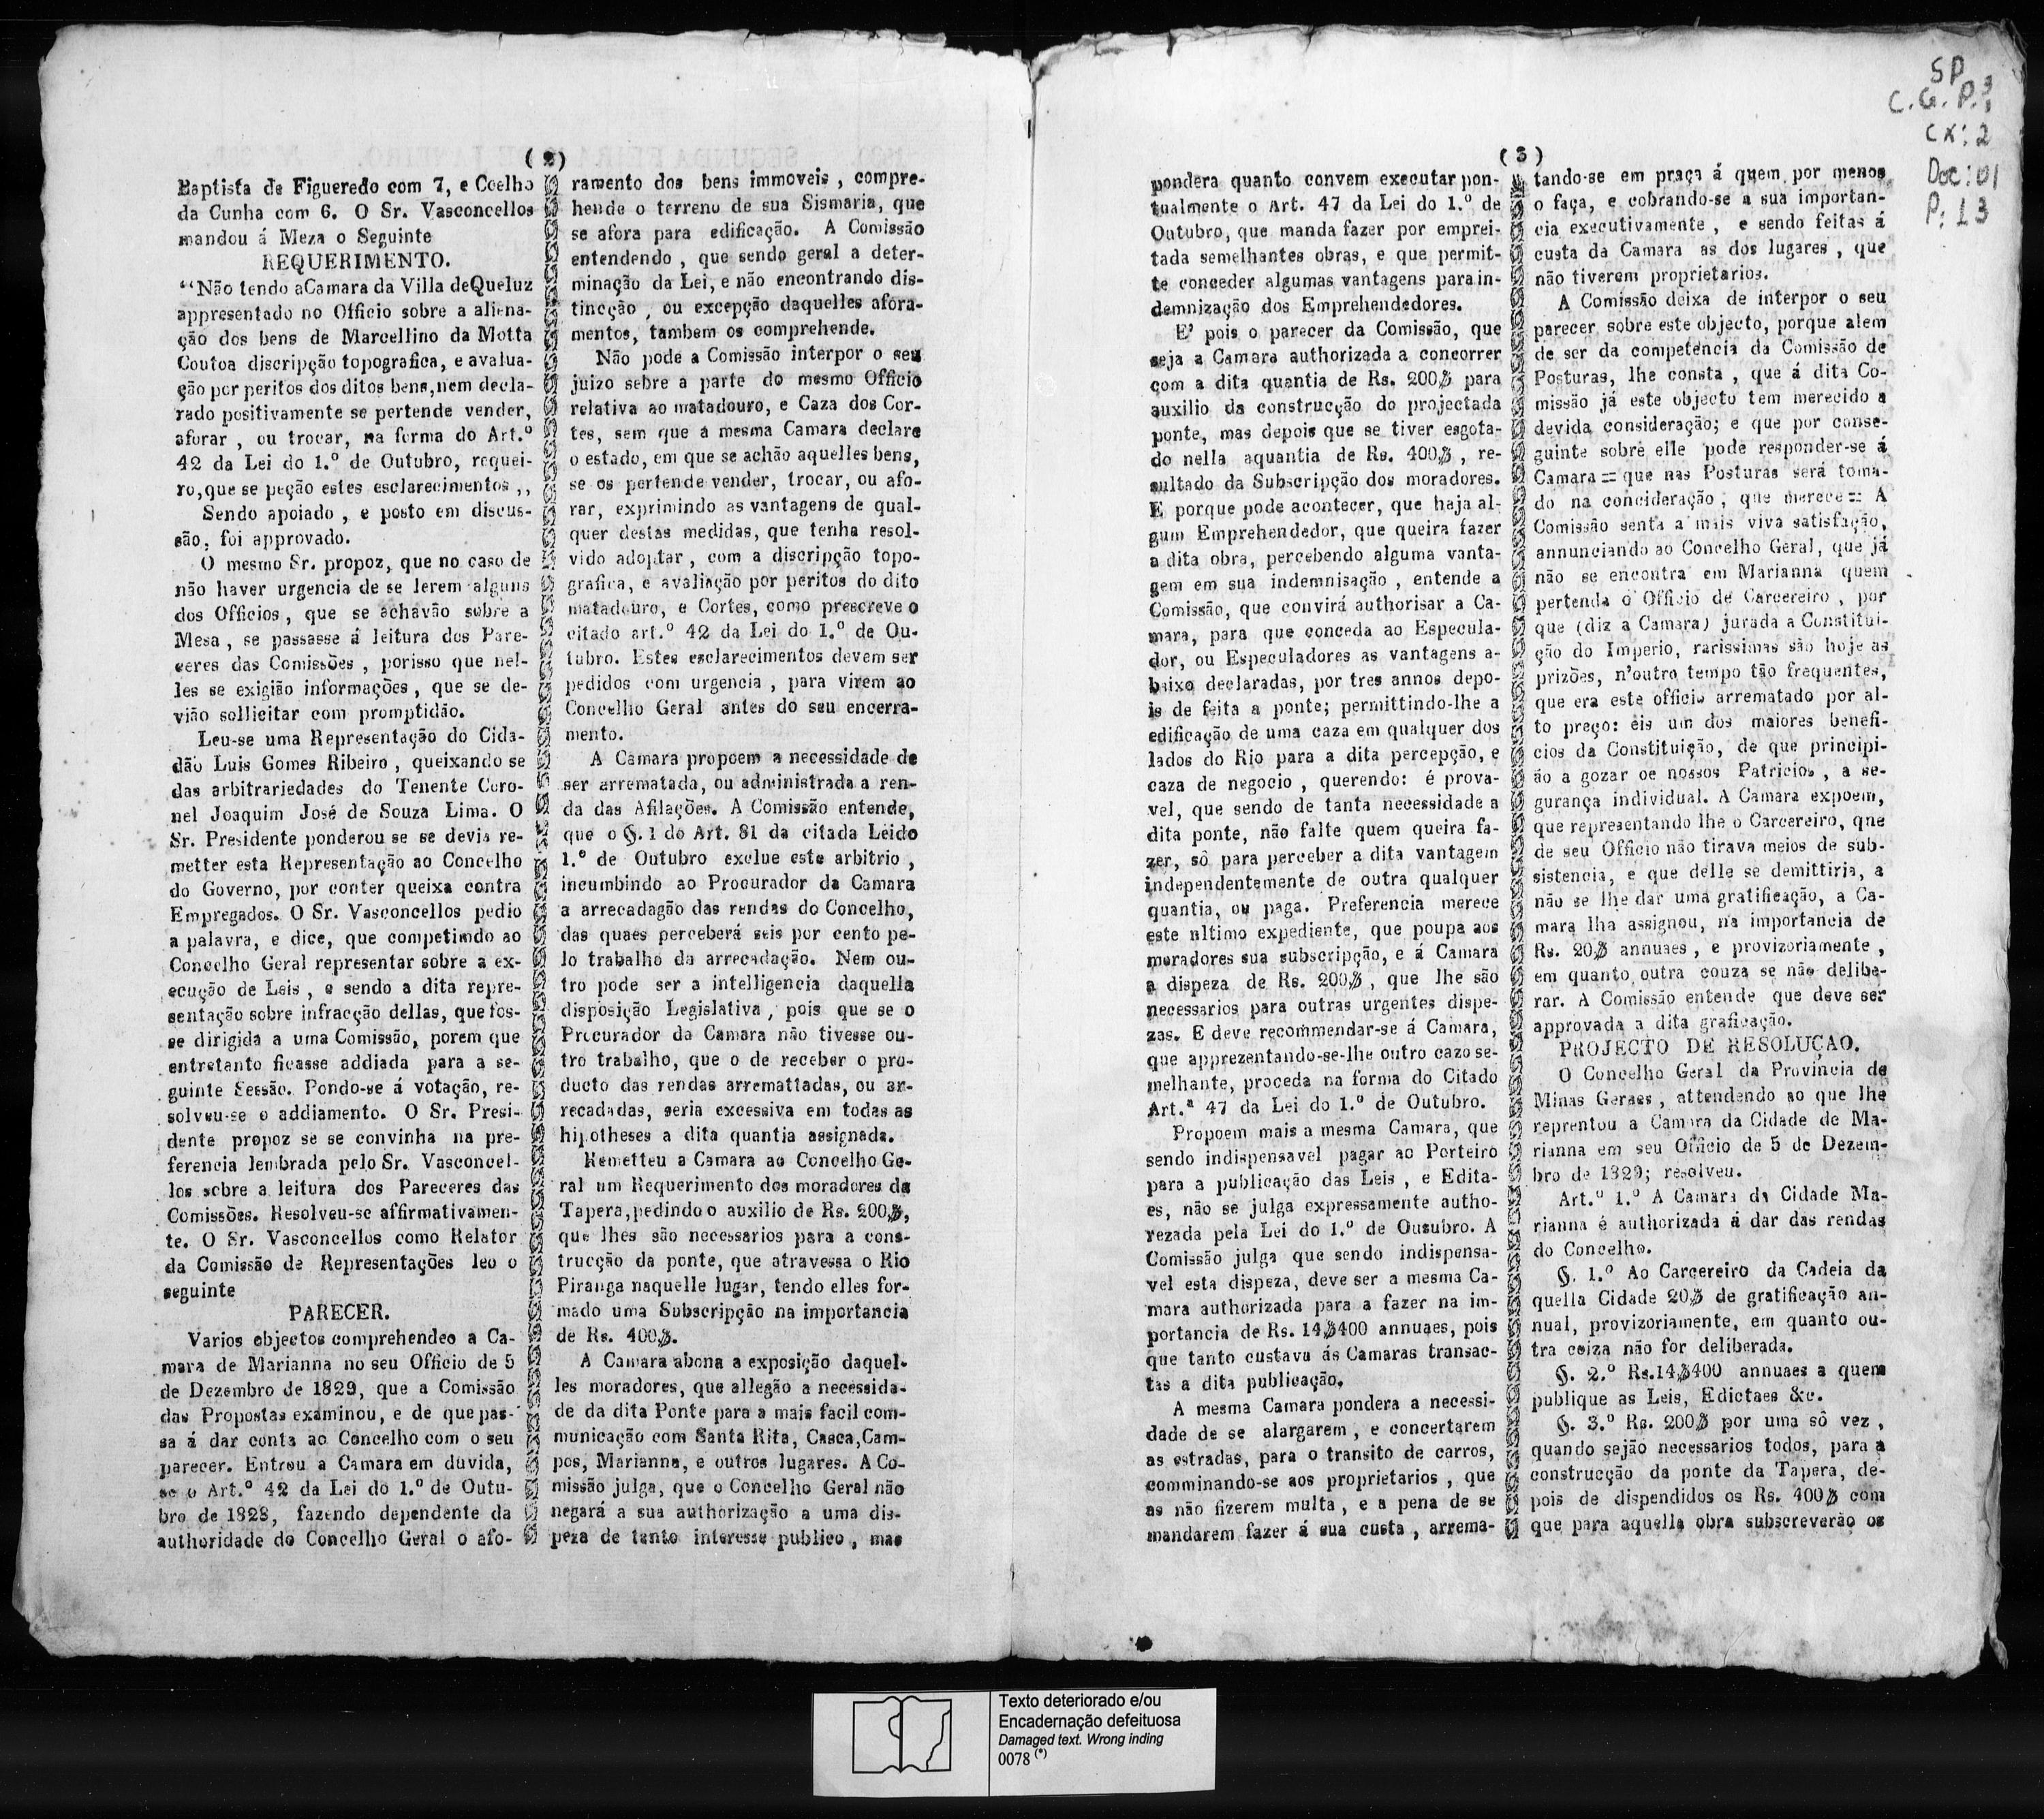 ( 2 )
Baptista de Figueredo com 7, e Coelho
da Cunha com 6. O Sr. Vasconcellos
mandou á Meza o Seguinte
REQUERIMENTO.
“Não tendo aCamara da Villa deQueluz
appresentado no Officio sobre a aliena-
ção dos bens de Marcellino da Motta
Coutoa discripção topografica, e avalua-
ção por peritos dos ditos bens, nem decla-
rado positivamente se pertende vender,
aforar , ou trocar, na forma do Art.º
42 da Lei do 1.º de Outubro, requei-
ro, que se peção estes esclarecimentos ,,
Sendo apoiado , e posto em discus-
são, foi approvado.
O mesmo Sr. propoz, que no caso de
não haver urgencia de se lerem alguns
dos Officios , que se achavão sobre a
Mesa , se passasse á leitura dos Pare-
ceres das Comissões , porisso que nel-
les se exigião informações , que se de-
vião sollicitar com promptidão.
Leu-se uma Representação do Cida-
dão Luis Gomes Ribeiro , queixando se
das arbitrariedades do Tenente Coro-
nel Joaquim José de Souza Lima. O
Sr. Presidente ponderou se se devia re-
metter esta Representação ao Concelho
do Governo, por conter queixa contra
Empregados. O Sr. Vasconcellos pedio
a palavra, e dice, que competindo ao
Concelho Geral representar sobre a ex-
ecução de Leis , e sendo a dita repre-
sentação sobre infracção dellas, que fos-
se dirigida a uma Comissão, porem que
entretanto ficasse addiada para a se-
guinte Sessão. Pondo-se á votação, re-
solveu-se o addiamento. O Sr. Presi-
dente propoz se se convinha na pre-
ferencia lembrada pelo Sr. Vasconcel-
los sobre a leitura dos Pareceres das
Comissões. Resolveu-se affirmativamen-
te. O Sr. Vasconcellos como Relator
da Comissão de Representações leo o
seguinte
PARECER.
Varios objectos comprehendeo a Ca-
mara de Marianna no seu Officio de 5
de Dezembro de 1829, que a Comissão
das Propostas examinou, e de que pas-
sa á dar conta ao Concelho com o seu
parecer. Entrou a Camara em duvida,
se o Art.º 42 da Lei do 1.º de Outu-
bro de 1828, fazendo dependente da
authoridade do Concelho Geral o afo-
ramento dos bens immoveis , compre-
hende o terreno de sua Sismaria, que
se afora para edificação. A Comissão
entendendo , que sendo geral a deter-
minação da Lei, e não encontrando dis-
tincção , ou excepção daquelles afora-
mentos, tambem os comprehende.
Não pode a Comissão interpor o seu
juizo sobre a parte do mesmo Officio
relativa ao matadouro, e Caza dos Cor-
tes, sem que a mesma Camara declare
o estado, em que se achão aquelles bens,
se os pertende vender, trocar, ou afo-
rar, exprimindo as vantagens de qual-
quer destas medidas, que tenha resol-
vido adoptar , com a discripção topo-
grafica, e avaliação por peritos do dito
matadouro, e Cortes, como prescreve o
citado art.º 42 da Lei do 1.º de Ou-
tubro. Estes esclarecimentos devem ser
pedidos com urgencia , para virem ao
Concelho Geral antes do seu encerra-
mento.
A Camara propoem a necessidade de
ser arrematada, ou administrada a ren-
da das Afilações. A Comissão entende,
que o §. 1 do Art. 81 da citada Leido
1.º de Outubro exclue este arbitrio ,
incumbindo ao Procurador da Camara
a arrecadagão das rendas do Concelho,
das quaes perceberá seis por cento pe-
lo trabalho da arrecadação. Nem ou-
tro pode ser a intelligencia daquella
disposição Legislativa , pois que se o
Procurador da Camara não tivesse ou-
tro trabalho, que o de receber o pro-
ducto das rendas arremattadas, ou ar-
recadadas, seria excessiva em todas as
hipotheses a dita quantia assignada.
Remetteu a Camara ao Concelho Ge-
ral um Requerimento dos moradores da
Tapera, pedindo o auxilio de Rs. 200$,
que lhes são necessarios para a cons-
trucção da ponte, que atravessa o Rio
Piranga naquelle lugar, tendo elles for-
mado uma Subscripção na importancia
de Rs. 400$.
A Camara abona a exposição daquel-
les moradores, que allegão a necessida-
de da dita Ponte para a mais facil com-
municação com Santa Rita, Casca, Cam-
pos, Marianna, e outros lugares. A Co-
missão julga, que o Concelho Geral não
negará a sua authorização a uma dis-
peza de tanto interesse publico , mas
( 3 )
pondera quanto convem executar pon-
tualmente o Art. 47 da Lei do 1.º de
Outubro, que manda fazer por emprei-
tada semelhantes obras, e que permit-
te conceder algumas vantagens para in-
demnização dos Emprehendedores.
E' pois o parecer da Comissão, que
seja a Camara authorizada a concorrer
com a dita quantia de Rs. 200$ para
auxilio da construcção do projectada
ponte, mas depois que se tiver esgota-
do nella aquantia de Rs. 400$ , re-
sultado da Subscripção dos moradores.
E porque pode acontecer, que haja al-
gum Emprehendedor, que queira fazer
a dita obra, percebendo alguma vanta-
gem em sua indemnisação , entende a
Comissão, que convirá authorisar a Ca-
mara, para que conceda ao Especula-
dor, ou Especuladores as vantagens a-
baixo declaradas, por tres annos depo-
is de feita a ponte; permittindo-lhe a
edificação de uma caza em qualquer dos
lados do Rio para a dita percepção, e
caza de negocio , querendo: é prova-
vel, que sendo de tanta necessidade a
dita ponte, não falte quem queira fa-
zer, sò para perceber a dita vantagem
independentemente de outra qualquer
quantia, ou paga. Preferencia merece
este nltimo expediente, que poupa aos
moradores sua subscripção, e á Camara
a dispeza de Rs. 200$, que lhe são
necessarios para outras urgentes dispe-
zas. E deve recommendar-se á Camara,
que apprezentando-se-lhe outro cazo se-
melhante, proceda na forma do Citado
Art.ª 47 da Lei do 1.º de Outubro.
Propoem mais a mesma Camara, que
sendo indispensavel pagar ao Porteiro
para a publicação das Leis , e Edita-
es, não se julga expressamente autho-
rezada pela Lei do 1.º de Outubro. A
Comissão julga que sendo indispensa-
vel esta dispeza, deve ser a mesma Ca-
mara authorizada para a fazer na im-
portancia de Rs. 14$400 annuaes, pois
que tanto custava ás Camaras transac-
tas a dita publicação.
A mesma Camara pondera a necessi-
dade de se alargarem , e concertarem
as estradas, para o transito de carros,
comminando-se aos proprietarios , que
as não fizerem multa , e a pena de se
mandarem fazer á sua custa , arrema-
tando-se em praça á quem por menos
o faça, e cobrando-se a sua importan-
cia executivamente , e sendo feitas á
custa da Camara as dos lugares , que
não tiverem proprietarios.
A Comissão deixa de interpor o seu
parecer sobre este objecto, porque alem
de ser da competencia da Comissão de
Posturas, lhe consta , que á dita Co-
missão já este objecto tem merecido a
devida consideração; e que por conse-
guinte sobre elle pode responder-se á
Camara = que nas Posturas será toma-
do na concideração , que merece = A
Comissão senta a mais viva satisfação,
annunciando ao Concelho Geral, que já
não se encontra em Marianna quem
pertenda o Officio de Carcereiro , por
que (diz a Camara) jurada a Constitui-
ção do Imperio, rarissimas são hoje as
prizões, n'outro tempo tão frequentes,
que era este officio arrematado por al-
to preço: eis um dos maiores benefi-
cios da Constituição, de que principi-
ão a gozar oe nossos Patricios , a se-
gurança individual. A Camara expoem,
que representando lhe o Carcereiro, que
de seu Officio não tirava meios de sub-
sistencia, e que delle se demittiria, a
não se lhe dar uma gratificação, a Ca-
mara lha assignou, na importancia de
Rs. 20$ annuaes , e provizoriamente ,
em quanto outra couza se não delibe-
rar. A Comissão entende que deve ser
approvada a dita graficação.
PROJECTO DE RESOLUÇAO.
O Concelho Geral da Provincia de
Minas Geraes , attendendo ao que lhe
reprentou a Camara da Cidade de Ma-
rianna em seu Officio de 5 de Dezem-
bro de 1829; resolveu.
Art.º 1.º A Camara da Cidade Ma-
rianna é authorizada á dar das rendas
do Concelho.
§. 1.º Ao Carcereiro da Cadeia da
quella Cidade 20$ de gratificação an-
nual, provizoriamente, em quanto ou-
tra coiza não for deliberada.
§. 2.º Rs.14$400 annuaes a quem
publique as Leis, Edictaes &c.
§. 3.º Rs. 200$ por uma sò vez ,
quando sejão necessarios todos, para a
construcção da ponte da Tapera, de-
pois de dispendidos os Rs. 400$ com
que para aquella obra subscreverão os
SP
C. G. P. 3
cx: 2
Doc: 01
P: 13
Texto deteriorado e/ou
Encadernação defeituosa
Damaged text. Wrong inding
0078 (*)